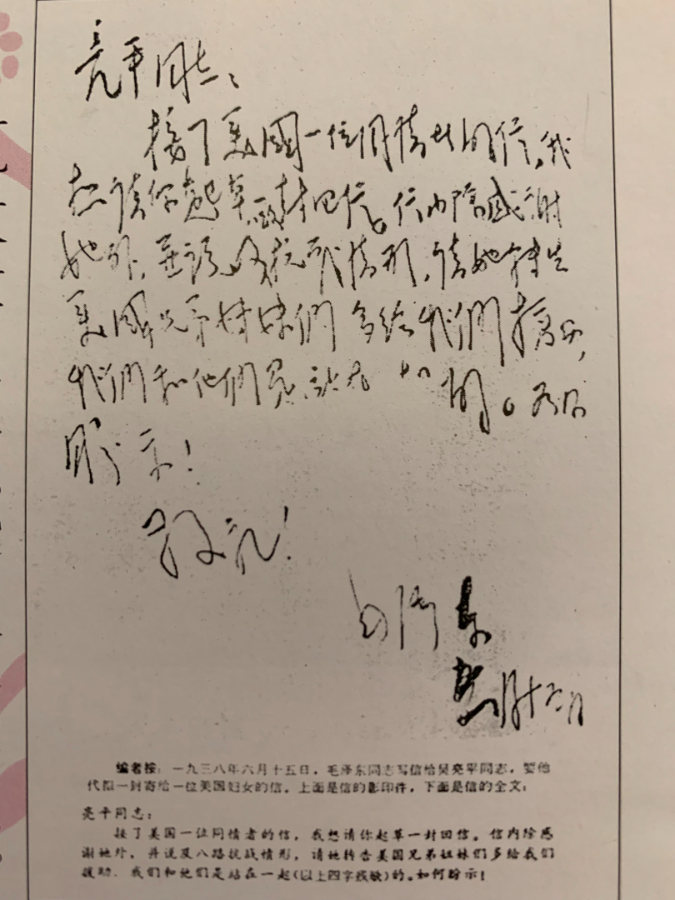 亮平同志：
接了美國一位同情者的信，我
想请你起草一封回信。信内除感謝
她外，並说及抗战情形，请她转告
美國兄弟姊妹們多给我們援助，
我們和他們是的。如何
盼示！
敬礼！
毛泽东
六月十五日
编者按：一九三八年六月十五日，毛泽东同志写信给吴亮平同志，要他
代拟一封寄给一位美国妇女的信。上面是信的影印件，下面是信的全文：
亮平同志：
接了美国一位同情者的信，我想请你起草一封回信。信内除感
谢她外，并说及八路抗战情形，请她转告美国兄弟姐妹们多给我们
援助，我们和他们是站在一起(以上四字残缺)的。如何盼示！